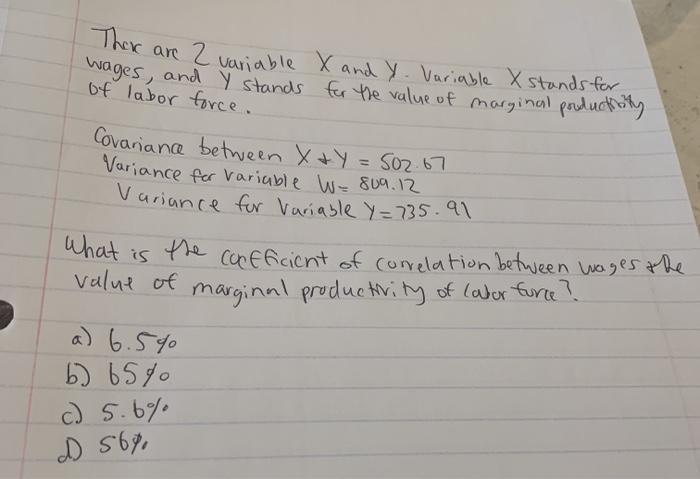 Ther are 2 variable X and Y. Variable X stands for
wages, and Y stands for the value of marginal productivity
of labor force.
Covariance between X & Y = 502.67
Variance for variable W = 809.12
Variance for Variable Y = 735.91
What is the coefficient of correlation between wages & the
value of marginal productivity of labor force?
a) 6.5%
b) 65%
c) 5.6%
d) 56%